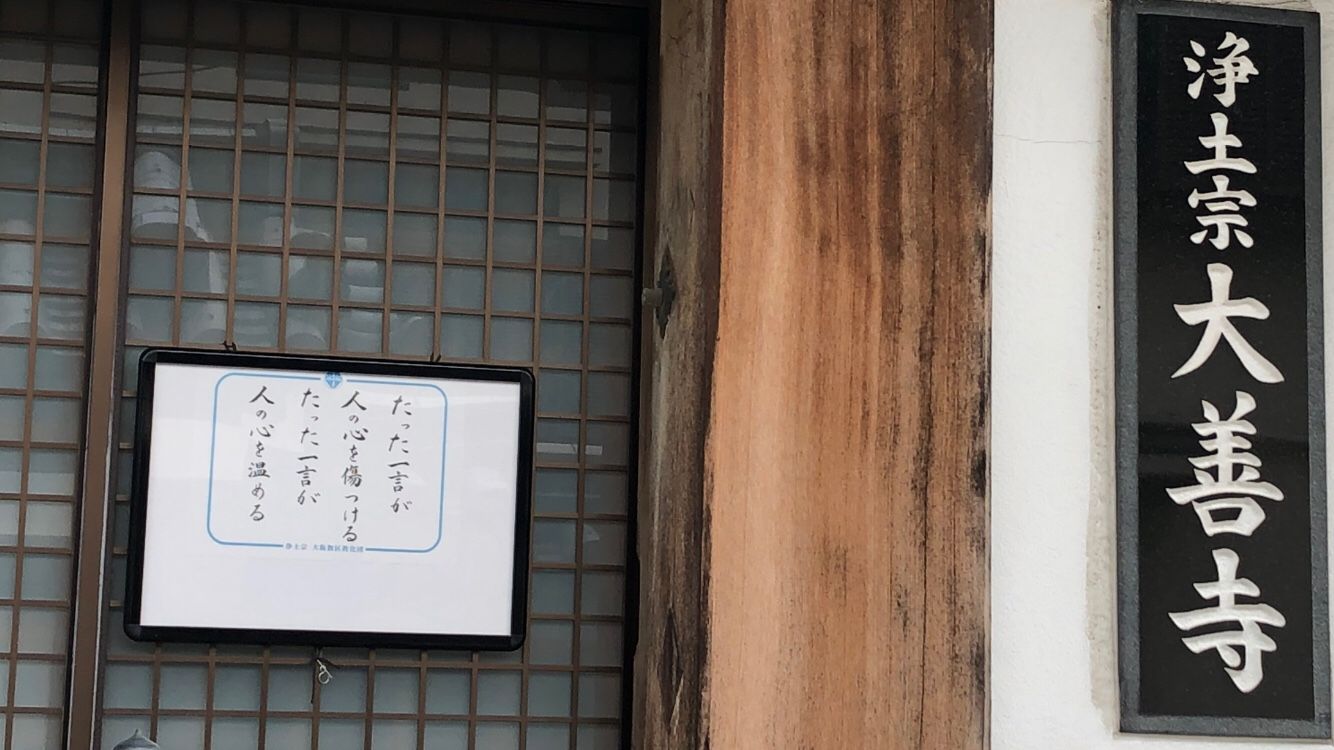 浄土宗 大善寺
たった一言が
人の心を傷つける
たった一言が
人の心を温める
浄土宗 大阪教区教化団